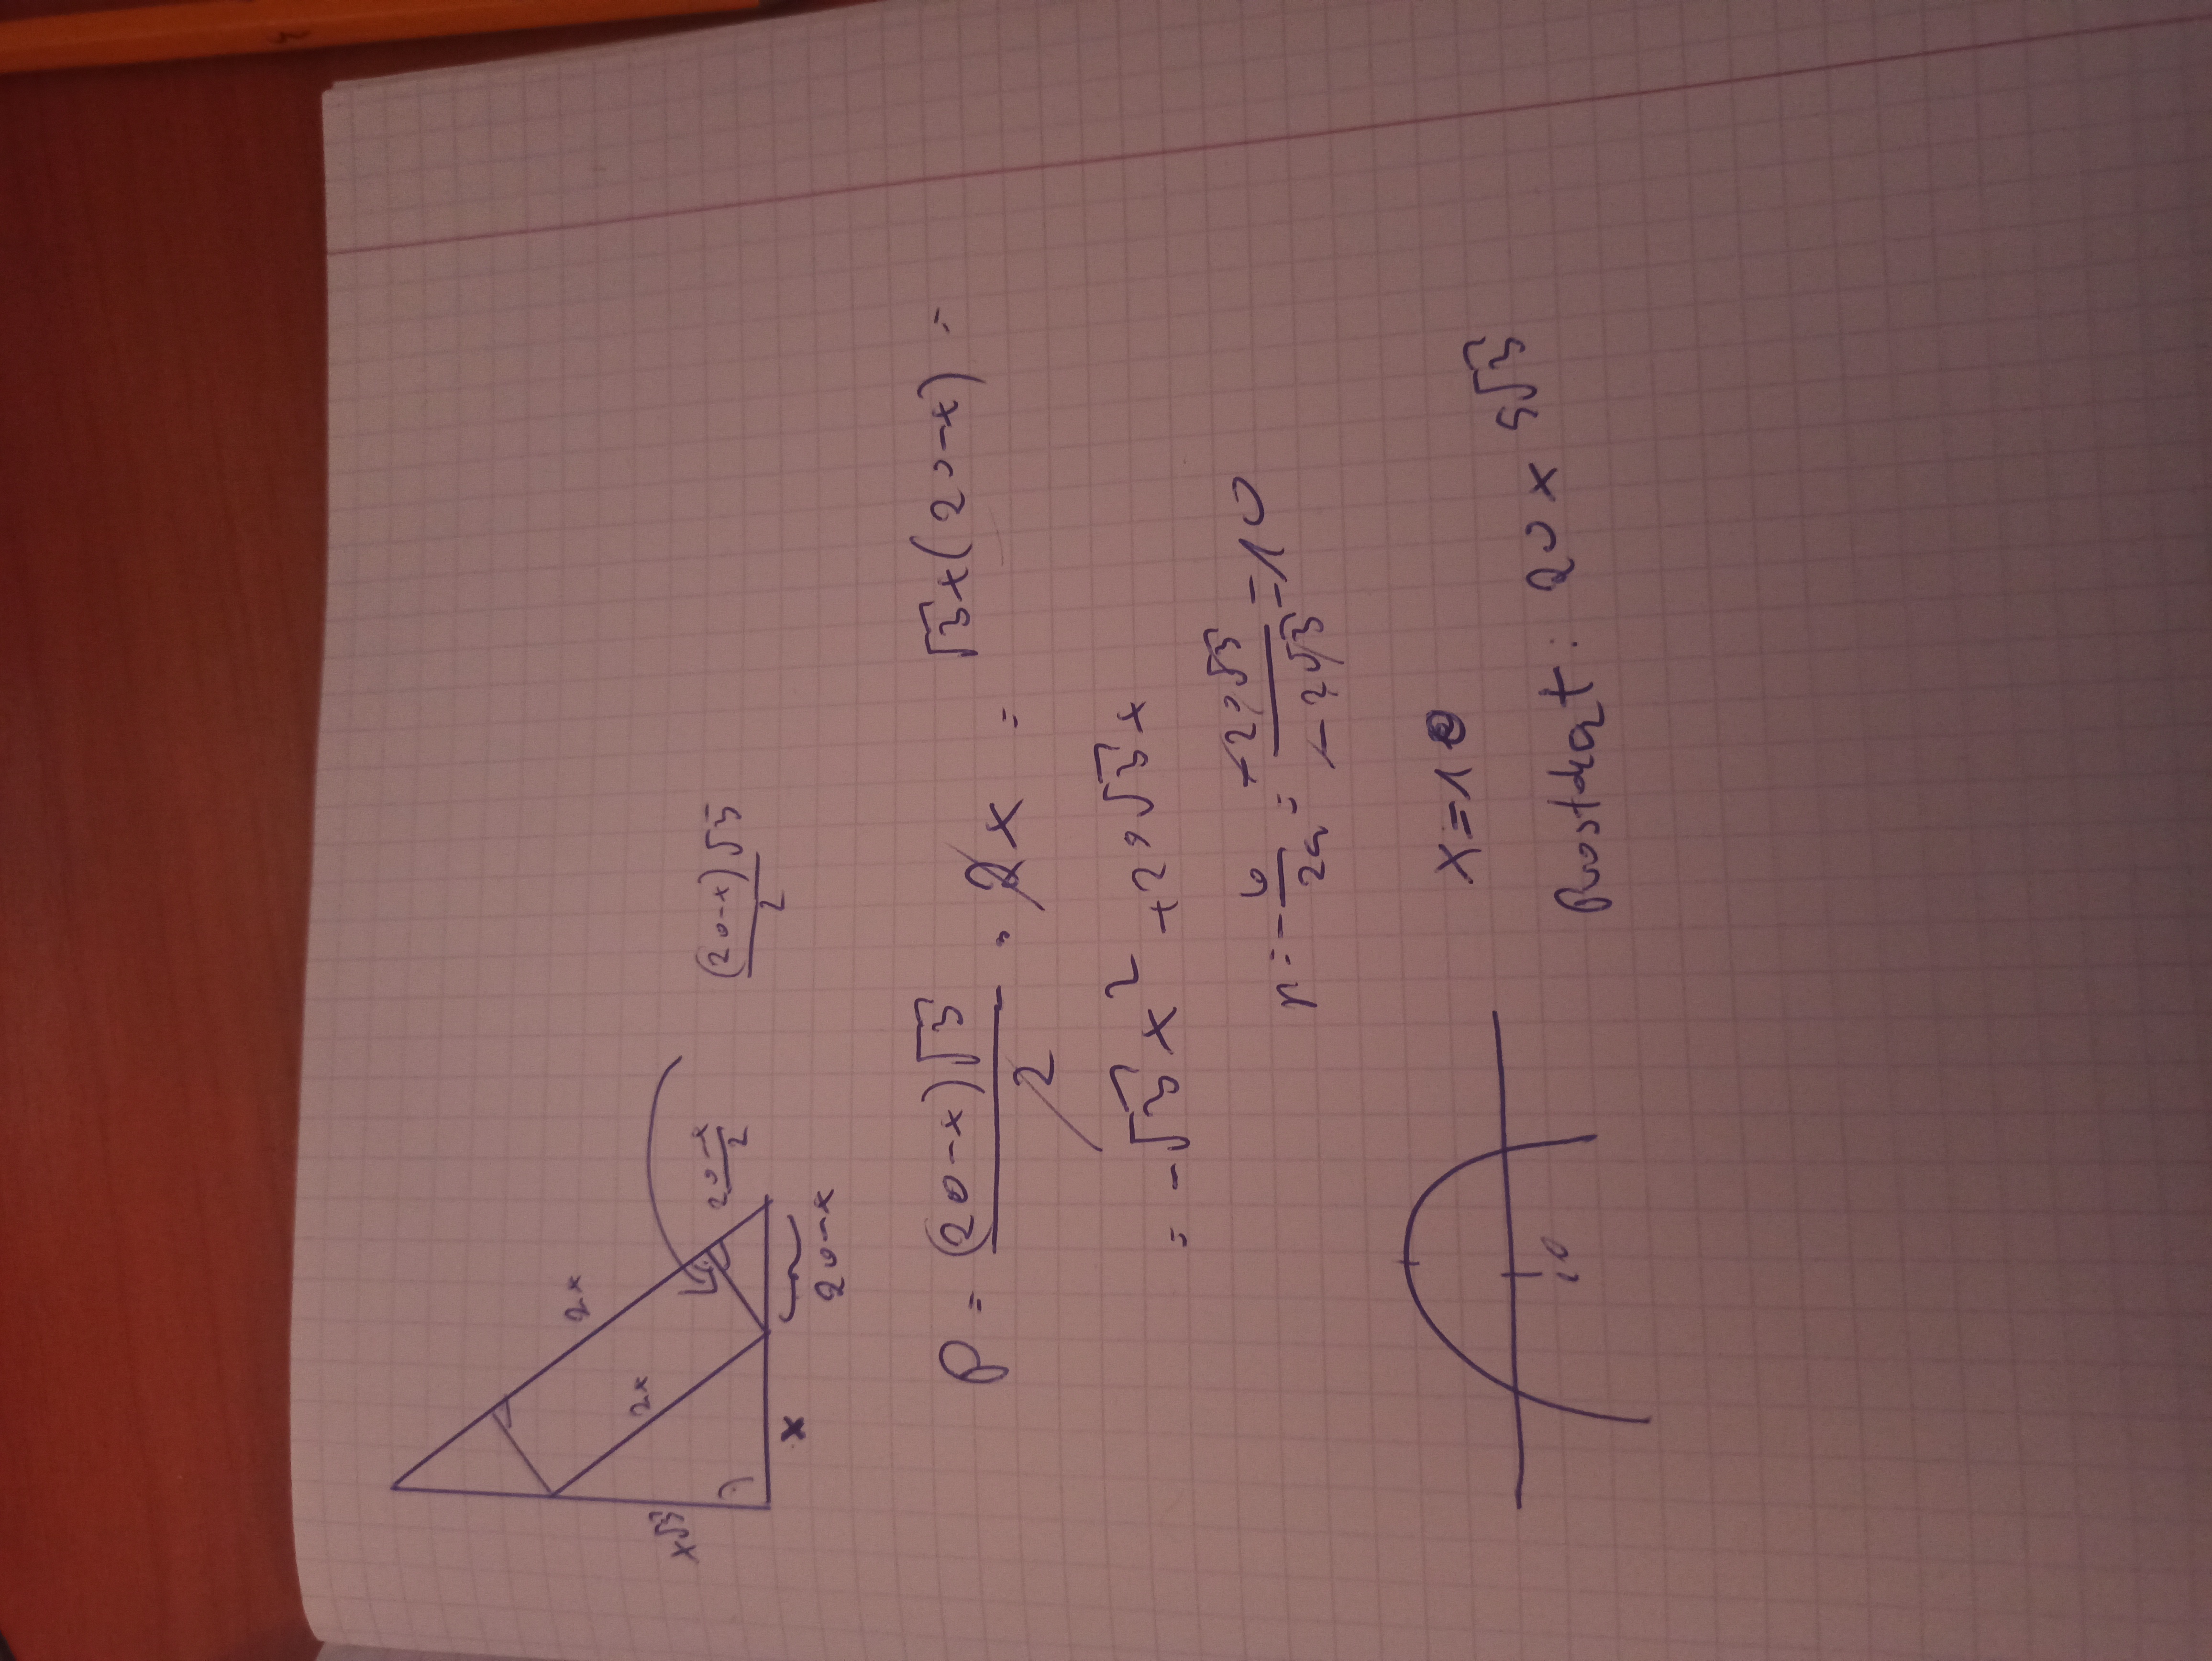 2x
2x
x√3
x
20-x
20-x/2
(20-x)√3/2
P = (20-x)√3/2 · 2x = √3x(20-x) =
= -√3x² + 20√3x
p = -b/2a = -20√3/-2√3 = 10
10
x=10
Prostokąt: 20 x 5√3